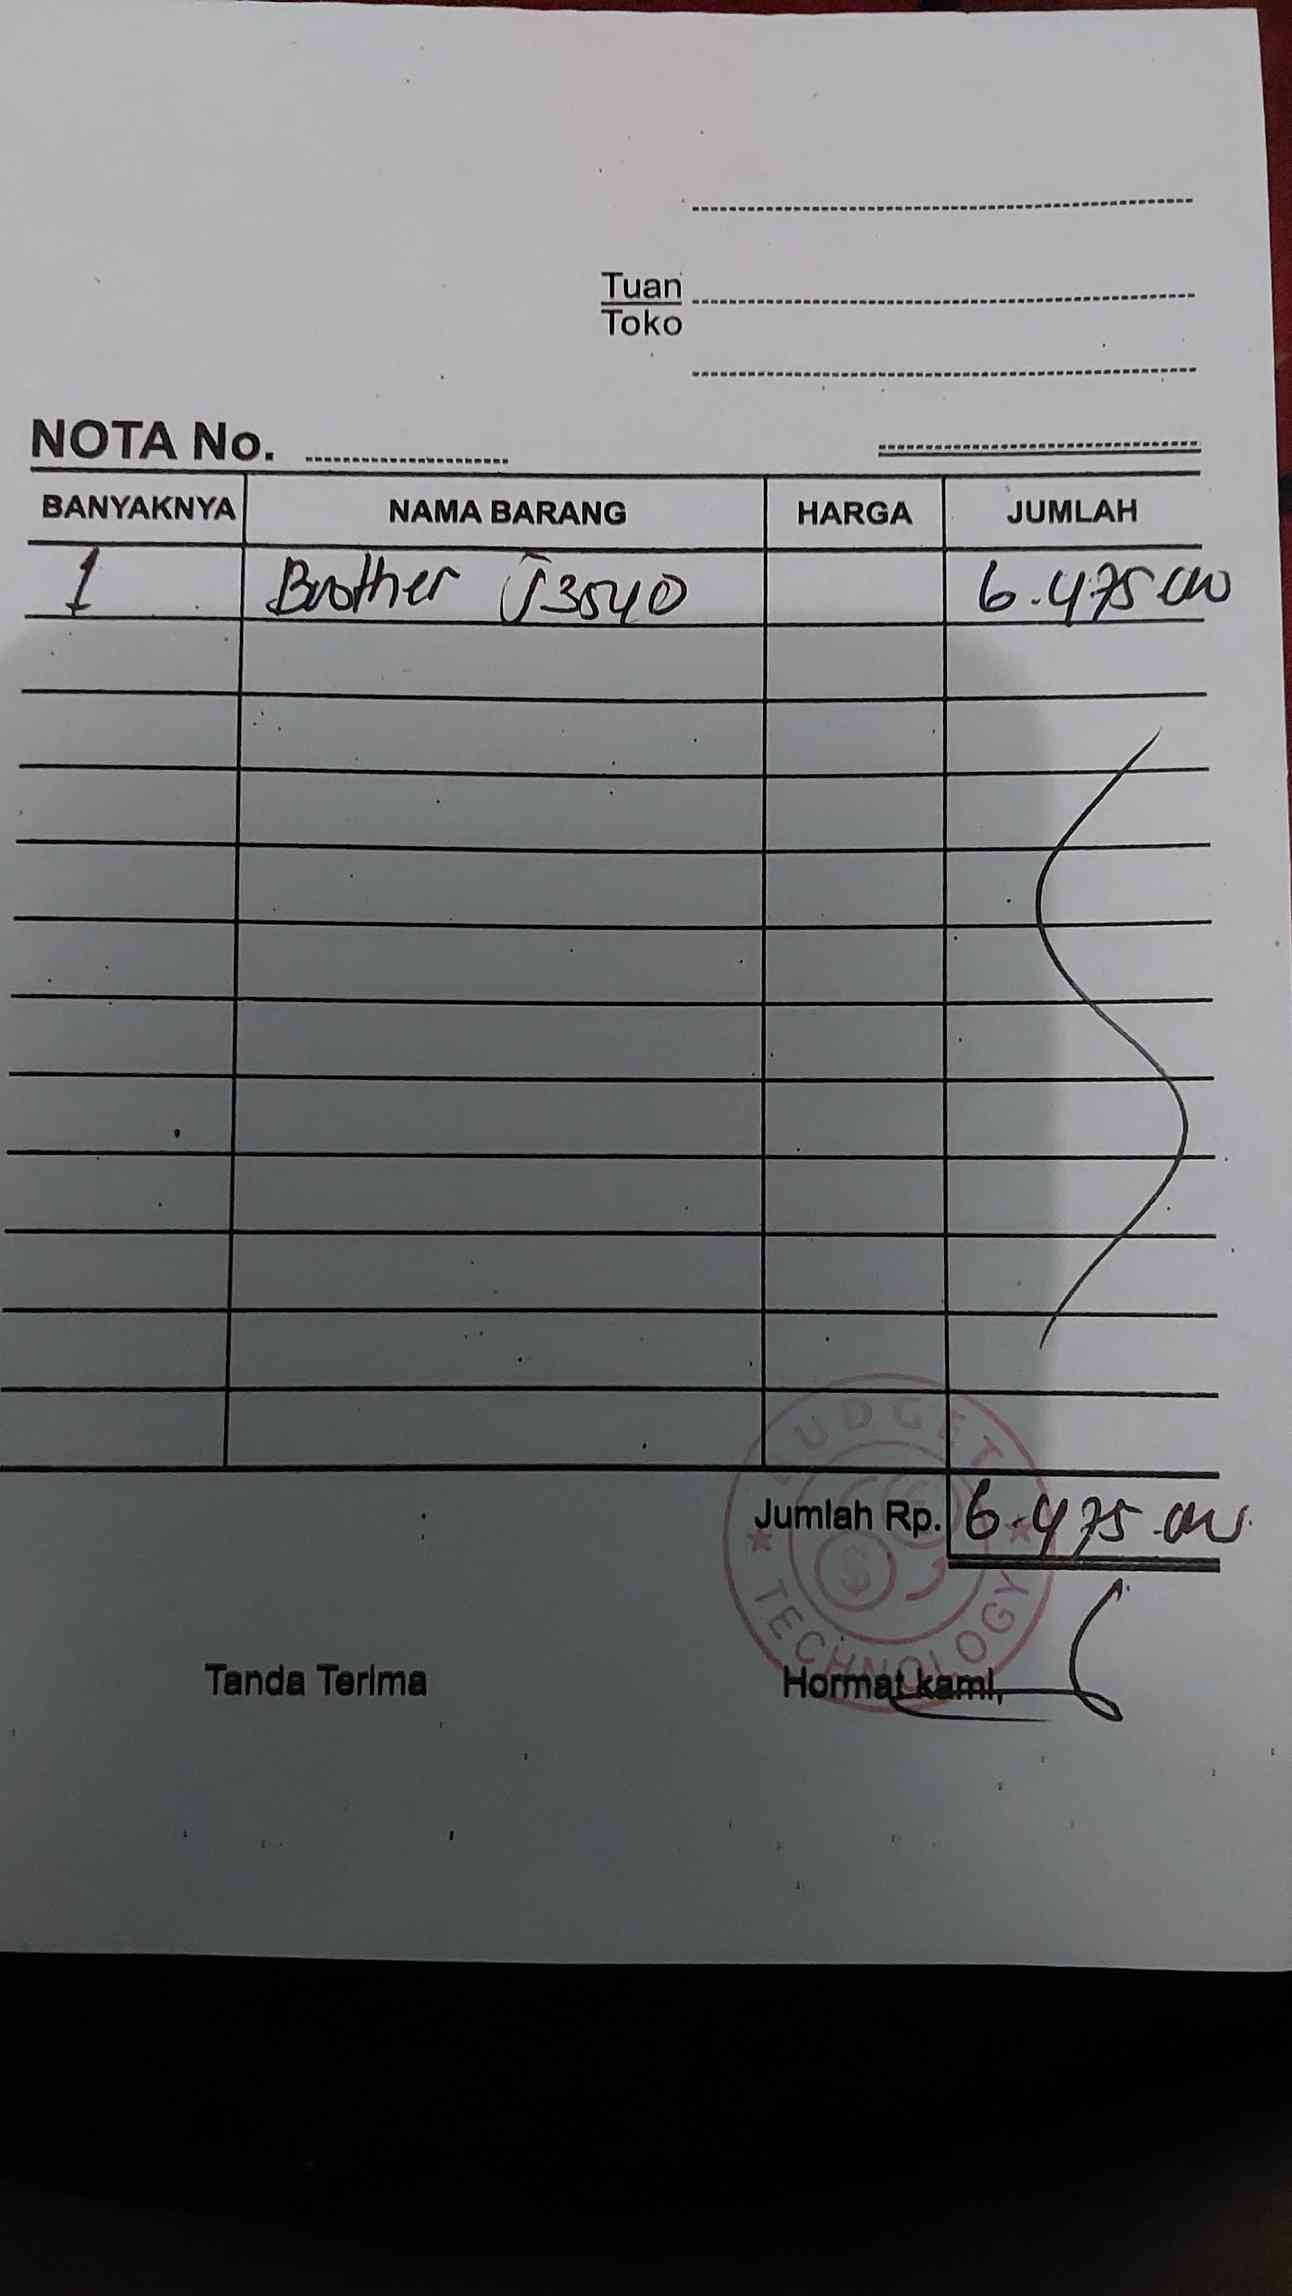 Tuan
Toko
NOTA No.
BANYAKNYA NAMA BARANG HARGA JUMLAH
1 Brother J3540 6.475.000
BUDGET
Jumlah Rp. 6.475.000
TECHNOLOGY
Tanda Terima Hormat kami,